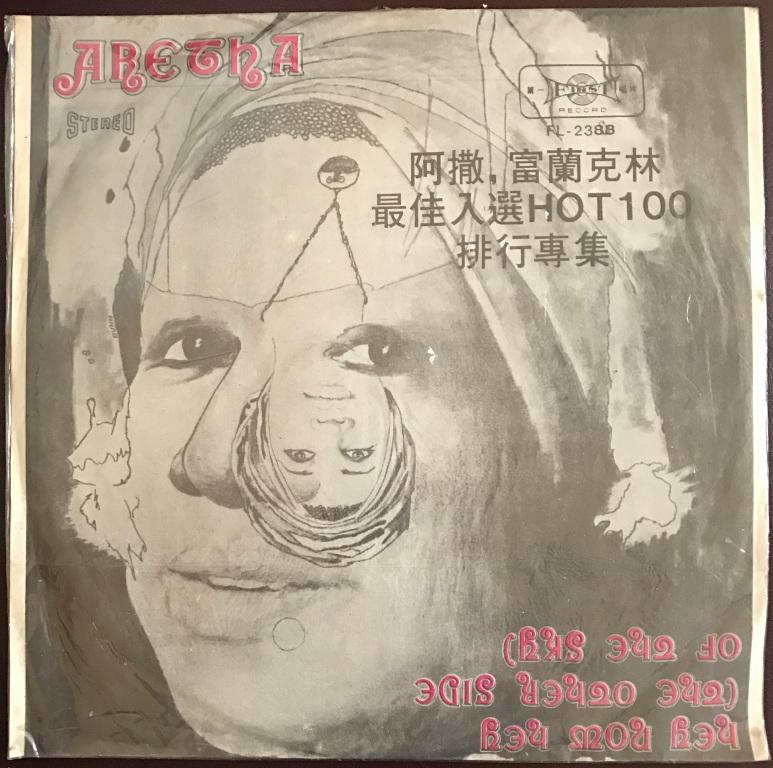 ARETHA
STEREO
第一 FIRST 唱片
RECORD
FL-2388
阿撒,富蘭克林
最佳入選HOT100
排行專集
HEY NOW HEY
(THE OTHER SIDE
OF THE SKY)